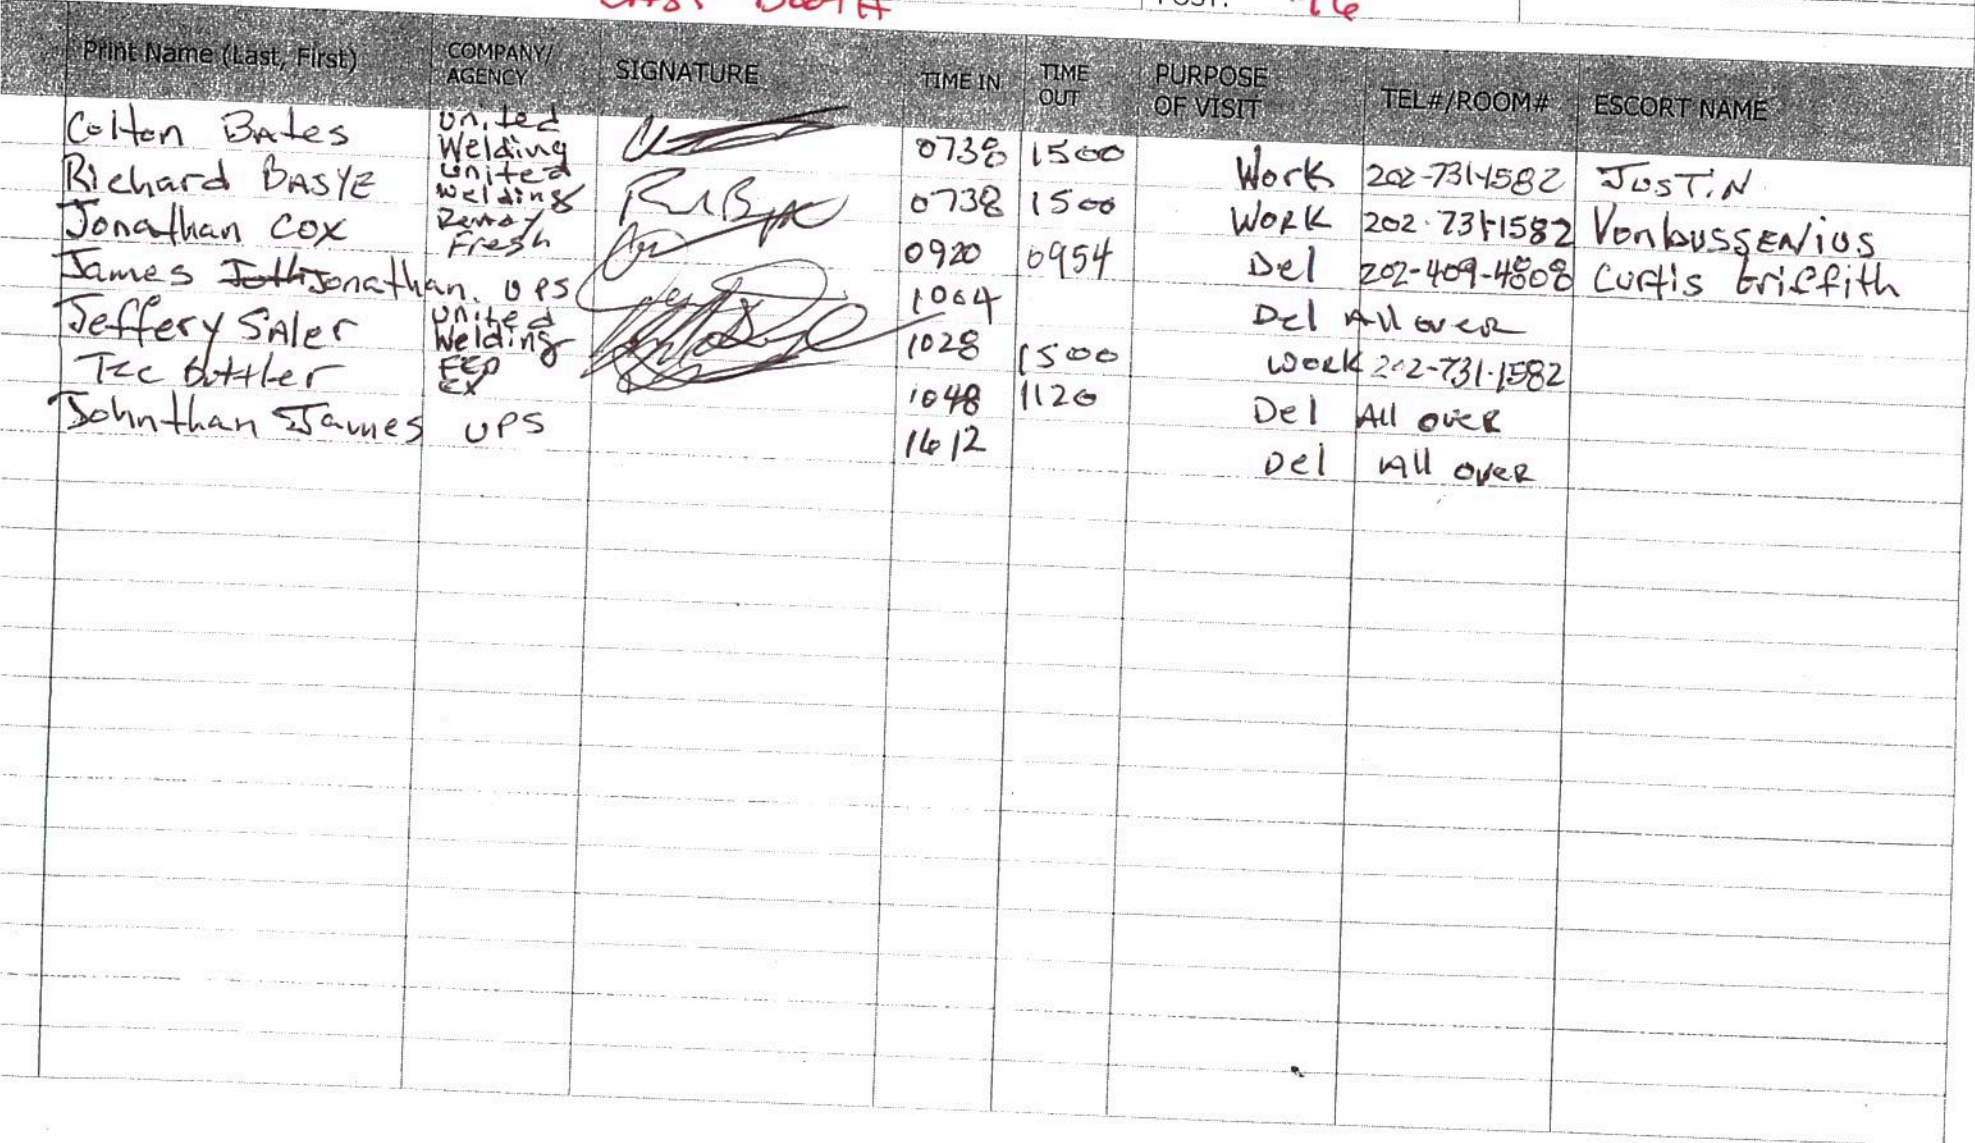 POST: 16
Print Name (Last, First) COMPANY/ AGENCY SIGNATURE TIME IN TIME OUT PURPOSE OF VISIT TEL#/ROOM# ESCORT NAME
Colton Bates United Welding 0738 1500 Work 202-731-1582 JUSTIN
Richard BASYE United Welding 0738 1500 WORK 202-731-1582 VonbussENius
Jonathan Cox Fresh 0920 0954 Del 202-409-4808 Curtis Griffith
James Jonathan. UPS 1004 Del All over
Jeffery SAler United Welding 1028 1500 Work 202-731-1582
FED EX 1048 1120 Del All over
Johnthan James UPS 1612 Del All over